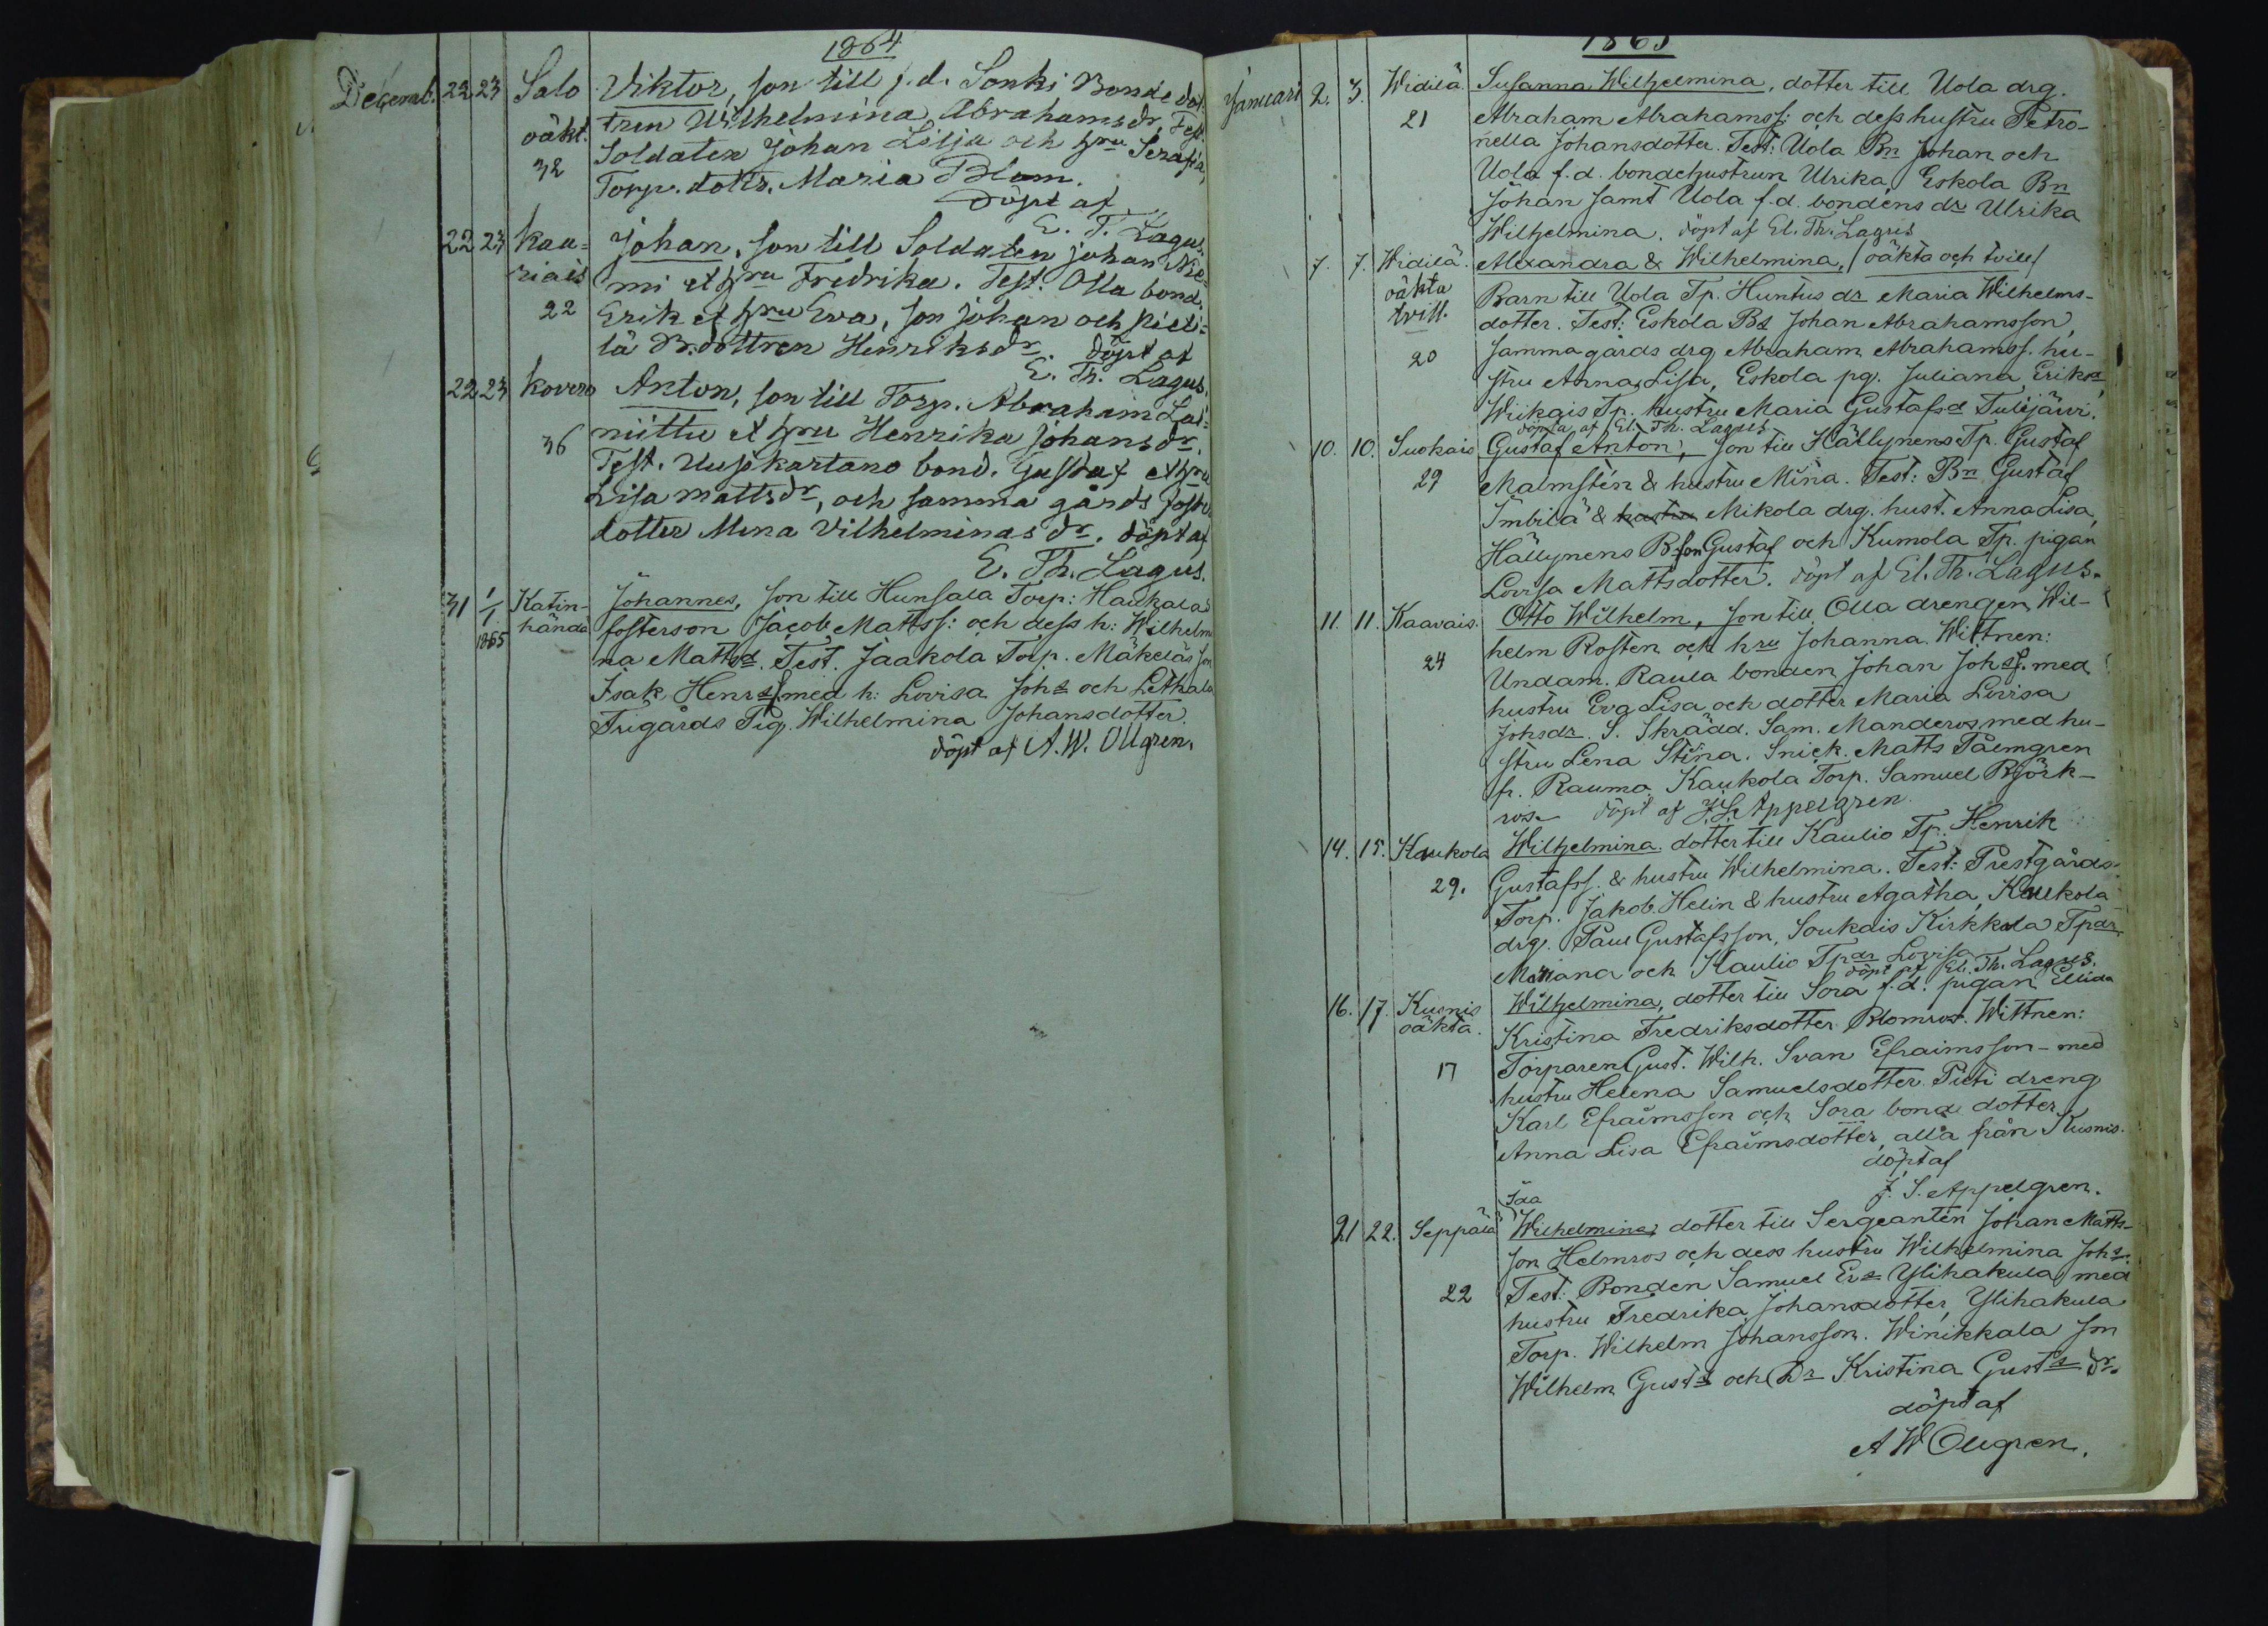 1864
Decemb. 22 23 Salo Viktor, son till f.d. Sonki Bonde dot
tren Wilhelmina Abrahamsdr, Test.
oäkt. Soldaten Johan Lilja och hru Serafia,
32 Torp. dottr. Maria Blom.
Döpt af
E. T. Lagus
22 23 Kau= Johan, son till Soldaten Johan Nie=
riais mi et hru Fredrika. Test. Olla bond.
22 Erik et hru Eva, son Johan och Pieti=
lä B.dottren Henriksdr. Döpt af
E. Th. Lagus.
22 23 Kovero Anton, son till Torp. Abraham Lai=
36 niittu et hru Henrika Johansdr.
Test. Uusikartano bond. Gustaf et hru
Lisa mattsdr, och samma gårds foste
dotter Mina Vilhelminas dr. döpt af
E. Th. Lagus.
31 1/1 Katin- Johannes, son till Hunsala Torp: Haukalas
1865 hända fosterson Jacob Mattss: och dess h: Wilhelmi
na Mattsd. Test. Jaakola Torp. Mäkeläs son
Isak Henrss med h: Lovisa Johs och Lethala
Frigårds Pig. Wilhelmina Johansdotter.
döpt af A. W. Ollgren.
1865
Januari 2. 3. Widilä. Susanna Wilhelmina, dotter till Uola drg.
21 Abraham Abrahamss: och dess hustru Petro-
nella Johansdotter. Test: Uola Bn Johan och
Uola f.d. bondehustrun Ulrika, Eskola Bn
Johan samt Uola f.d. bondens dr Ulrika
Wilhelmina. döpt af El. Th. Lagus
7. 7. Widilä. Alexandra & Wilhelmina, / oäkta och tvill /
oäkta Barn till Uola Tp. Huntus dr Maria Wilhelms-
tvill. dotter. Test: Eskola Bs Johan Abrahamsson,
20 samma gårds drg Abraham Abrahamss. hu-
stru Anna Lisa, Eskola pg. Juliana Eriksd,
Wiikais Tp. hustru Maria Gustafsd Tulijärvi.
döpta af El. Th. Lagus
10. 10. Suokais Gustaf Anton, son till Hällynens Tp. Gustaf
29 Malmstén & hustru Mina. Test: Bn Gustaf
Imbilä & hustru Mikola drg. hust. Anna Lisa,
Hällynens B.son Gustaf och Kumola Tp. pigan
Lovisa Mattsdotter. döpt af El. Th. Lagus.
11. 11. Kaavais. Otto Wilhelm, son till Olla drengen Wil-
24 helm Rosten och hru Johanna. Wittnen:
Undam. Raula bonden Johan Johss. med
hustru Eva Lisa och dotter Maria Lovisa
Johsdr. S. Skrädd. Sam. Manderos med hu-
stru Lena Stina. Snick. Matts Palmgren
fr. Raumo. Kaukola Torp. Samuel Björk-
ros. döpt af J. S. Appelgren.
14. 15. Kaukola Wilhelmina. dotter till Kaulio Tp. Henrik
29. Gustafss. & hustru Wilhelmina. Test: Prestgårds-
Torp. Jakob Helin & hustru Agatha, Kaukola
drg. Paul Gustafsson, Soukais Kirkkola Tpdr.
Mariana och Kaulio Tpdr Lovisa
döpt af El. Th. Lagus.
16. 17. Kusnis Wilhelmina, dotter till Sora f.d. pigan Elida
oäkta. Kristina Fredriksdotter Blomros. Wittnen:
17 Torparen Gust. Wilh. Svan Efraimsson - med
hustru Helena Samuelsdotter Pieti dreng
Karl Efraimsson och Sora bonde dotter
Anna Lisa Efraimsdotter, alla från Kusnis.
döpt af
J. S. Appelgren.
Ida
21 22. Seppälä Wilhelmina, dotter till Sergeanten Johan Matts-
son Helmros och dess hustru Wilhelmina Johs.
22 Test: Bonden Samuel Ers Ylihakula med
hustru Fredrika Johansdotter, Ylihakula
Torp. Wilhelm Johansson. Winikkala son
Wilhelm Gusts och Dr Kristina Gusts dr.
döpt af
A W Ollgren.